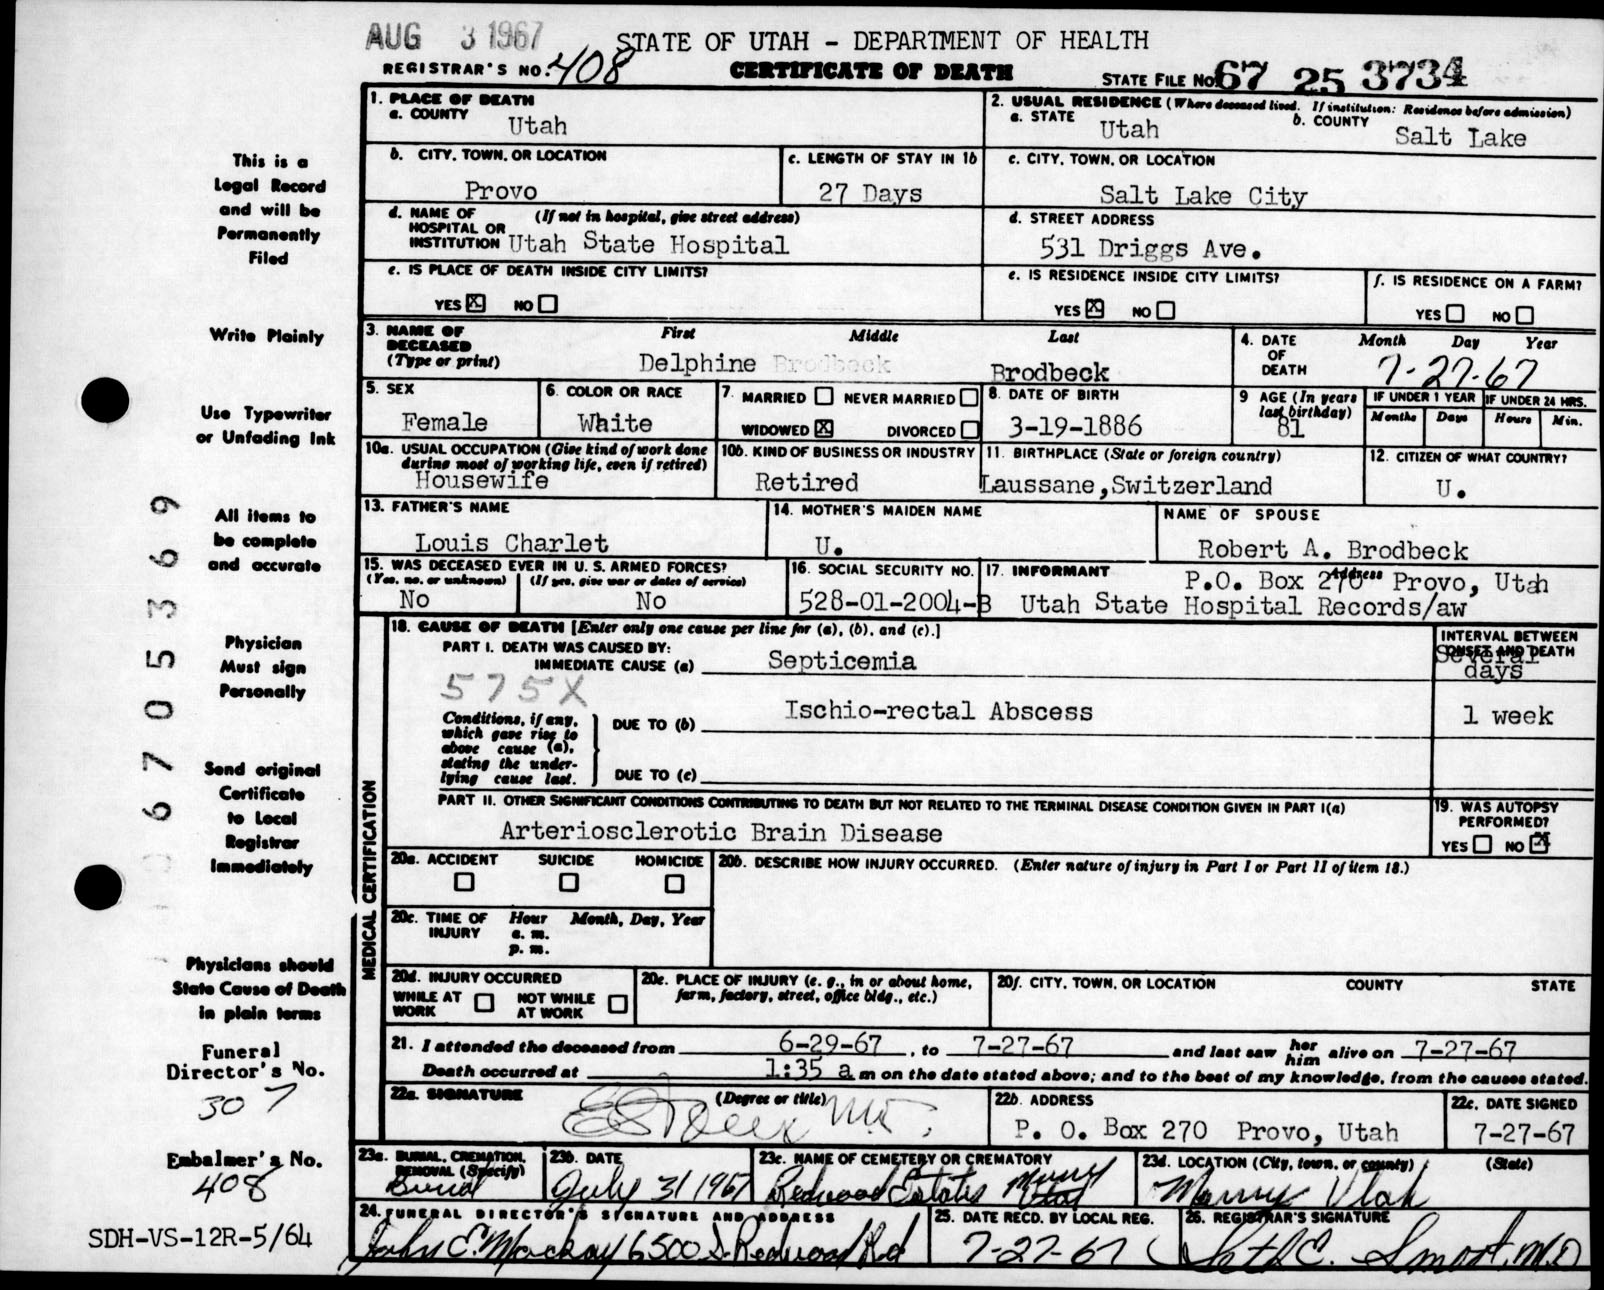 AUG 3 1967
STATE OF UTAH - DEPARTMENT OF HEALTH
REGISTRAR'S NO. 408
CERTIFICATE OF DEATH
STATE FILE NO. 67 25 3734
1. PLACE OF DEATH
a. COUNTY
Utah
2. USUAL RESIDENCE (Where deceased lived. If institution: Residence before admission)
a. STATE
Utah
b. COUNTY
Salt Lake
b. CITY, TOWN, OR LOCATION
Provo
c. LENGTH OF STAY IN 1b
27 Days
c. CITY, TOWN, OR LOCATION
Salt Lake City
d. NAME OF HOSPITAL OR INSTITUTION
(If not in hospital, give street address)
Utah State Hospital
d. STREET ADDRESS
531 Driggs Ave.
e. IS PLACE OF DEATH INSIDE CITY LIMITS?
YES X NO
e. IS RESIDENCE INSIDE CITY LIMITS?
YES X NO
f. IS RESIDENCE ON A FARM?
YES NO
3. NAME OF DECEASED (Type or print)
First Middle Last
Delphine Brodbeck Brodbeck
4. DATE OF DEATH
Month Day Year
7-27-67
5. SEX
Female
6. COLOR OR RACE
White
7. MARRIED NEVER MARRIED
WIDOWED X DIVORCED
8. DATE OF BIRTH
3-19-1886
9 AGE (In years last birthday)
81
IF UNDER 1 YEAR
Months Days
IF UNDER 24 HRS.
Hours Min.
10a. USUAL OCCUPATION (Give kind of work done during most of working life, even if retired)
Housewife
10b. KIND OF BUSINESS OR INDUSTRY
Retired
11. BIRTHPLACE (State or foreign country)
Laussane,Switzerland
12. CITIZEN OF WHAT COUNTRY?
U.
13. FATHER'S NAME
Louis Charlet
14. MOTHER'S MAIDEN NAME
U.
NAME OF SPOUSE
Robert A. Brodbeck
15. WAS DECEASED EVER IN U. S. ARMED FORCES?
(Yes, no, or unknown) (If yes, give war or dates of service)
No No
16. SOCIAL SECURITY NO.
528-01-2004-B
17. INFORMANT Address
P.O. Box 270 Provo, Utah
Utah State Hospital Records/aw
MEDICAL CERTIFICATION
18. CAUSE OF DEATH [Enter only one cause per line for (a), (b), and (c).]
PART I. DEATH WAS CAUSED BY:
IMMEDIATE CAUSE (a) Septicemia
575X
INTERVAL BETWEEN ONSET AND DEATH
Several days
Conditions, if any, which gave rise to above cause (a), stating the underlying cause last.
DUE TO (b) Ischio-rectal Abscess
1 week
DUE TO (c)
PART II. OTHER SIGNIFICANT CONDITIONS CONTRIBUTING TO DEATH BUT NOT RELATED TO THE TERMINAL DISEASE CONDITION GIVEN IN PART I(a)
Arteriosclerotic Brain Disease
19. WAS AUTOPSY PERFORMED?
YES NO X
20a. ACCIDENT SUICIDE HOMICIDE
20b. DESCRIBE HOW INJURY OCCURRED. (Enter nature of injury in Part I or Part II of item 18.)
20c. TIME OF INJURY Hour Month, Day, Year
a. m.
p. m.
20d. INJURY OCCURRED
WHILE AT WORK NOT WHILE AT WORK
20e. PLACE OF INJURY (e. g., in or about home, farm, factory, street, office bldg., etc.)
20f. CITY, TOWN, OR LOCATION COUNTY STATE
21. I attended the deceased from 6-29-67, to 7-27-67 and last saw her him alive on 7-27-67
Death occurred at 1:35 a m on the date stated above; and to the best of my knowledge, from the causes stated.
22a. SIGNATURE (Degree or title)
22b. ADDRESS
P. O. Box 270 Provo, Utah
22c. DATE SIGNED
7-27-67
23a. BURIAL, CREMATION, REMOVAL (Specify)
Burial
23b. DATE
July 31 1967
23c. NAME OF CEMETERY OR CREMATORY
Redwood Estates Murry Utah
23d. LOCATION (City, town, or county) (State)
Murry Utah
24. FUNERAL DIRECTOR'S SIGNATURE AND ADDRESS
John E. Mackay 6500 S. Redwood Rd
25. DATE RECD. BY LOCAL REG.
7-27-67
26. REGISTRAR'S SIGNATURE
Seth E. Smoot, M.D
This is a
Legal Record
and will be
Permanently
Filed
Write Plainly
Use Typewriter
or Unfading Ink
All items to
be complete
and accurate
Physician
Must sign
Personally
Send original
Certificate
to Local
Registrar
Immediately
Physicians should
State Cause of Death
in plain terms
Funeral
Director's No.
307
Embalmer's No.
408
SDH-VS-12R-5/64
6705369